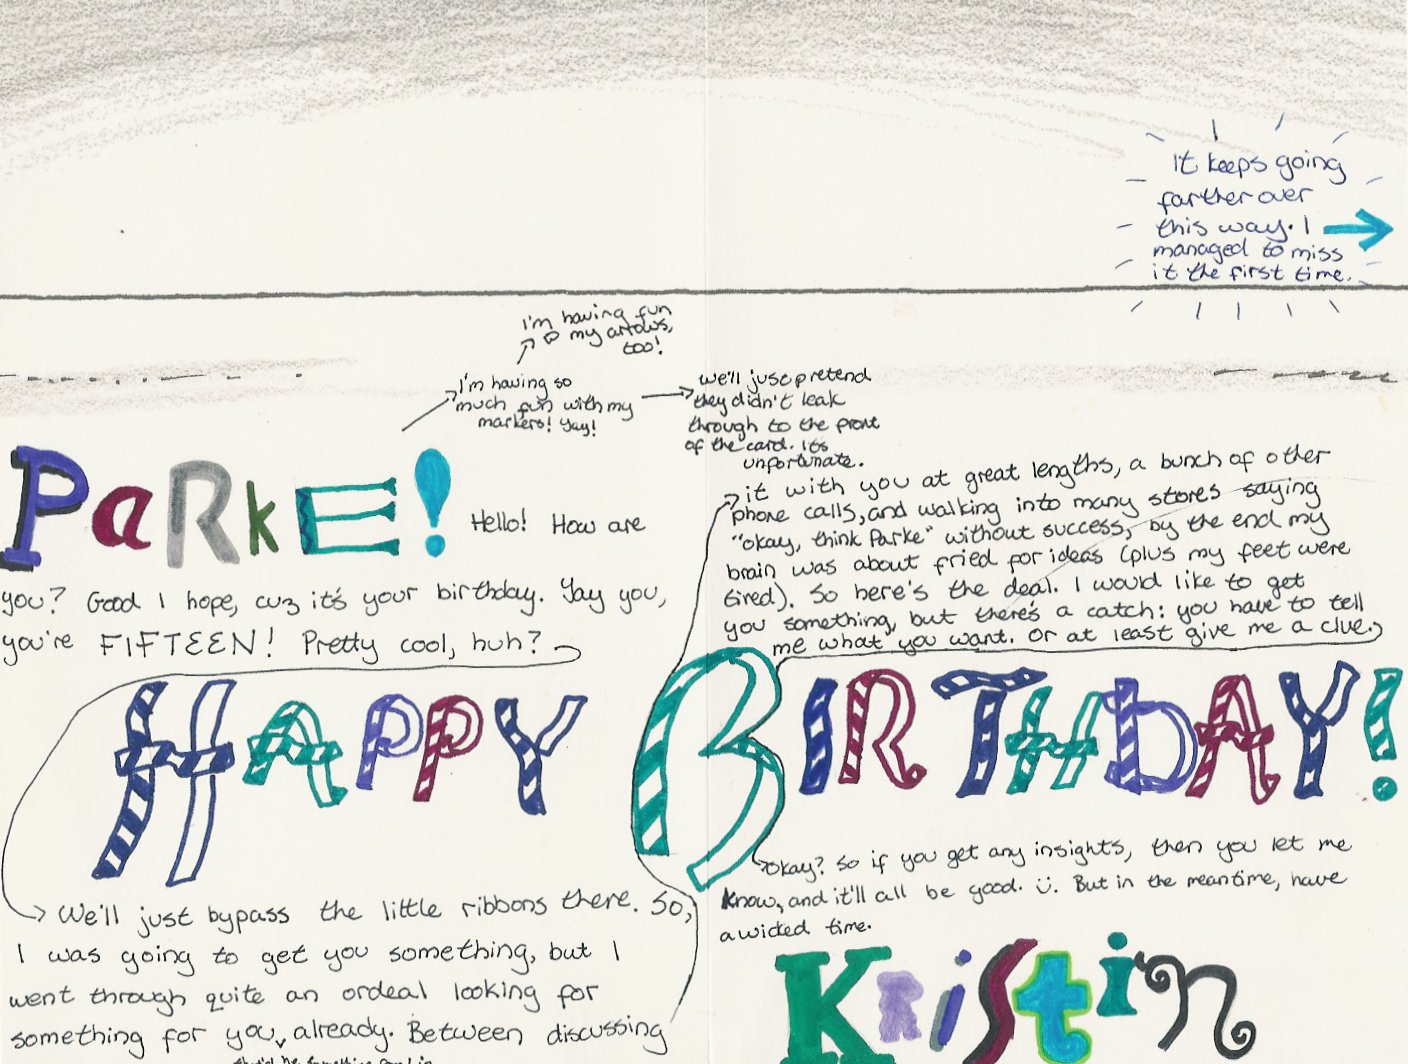 It keeps going
farther over
this way. I
managed to miss
it the first time.
I'm having fun
my arrows,
too!
I'm having so
much fun with my
markers! Yay!
We'll just pretend
they didn't leak
through to the front
of the card. It's
unfortunate.
PaRkE! Hello! How are
you? Good I hope, cuz it's your birthday. Yay you,
you're FIFTEEN! Pretty cool, huh?
HAPPY
We'll just bypass the little ribbons there. So,
I was going to get you something, but I
went through quite an ordeal looking for
something for you, already. Between discussing
it with you at great lengths, a bunch of other
phone calls, and walking into many stores saying
"okay, think Parke" without success, by the end my
brain was about fried for ideas (plus my feet were
tired). So here's the deal. I would like to get
you something, but there's a catch: you have to tell
me what you want. Or at least give me a clue.
BIRTHDAY!
Okay? So if you get any insights, then you let me
know, and it'll all be good. Ü. But in the meantime, have
a wicked time.
Kristin